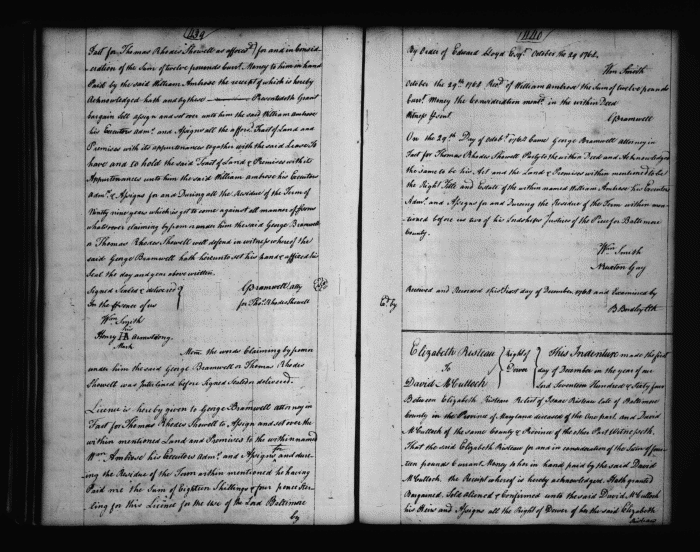 439
Fact for Thomas Rhodes Showell as aforesd for and in Consid-
-eration of the Sum of twelve pounds Currt. Money to him in hand
Paid by the said William Ambrose the receipt of which is hereby
Acknowledged hath and by these Presents doth Grant
bargain Sell assign and set over unto him the said William ambrose
his Executors Admrs. and Assigns all the aforesd. Tract of Land and
Premises with its appurtenances together with the said Lease To
have and to hold the said Tract of Land & Premises with its
Appurtenances unto him the said William Ambrose his Executors
Admrs. & Assigns for and During all the Residue of the Term of
Ninty nine years which is yet to come against all manner of persons
whatsoever claiming by from or under him the said George Bramwell
or Thomas Rhodes Showell will defend in witness whereof the
said George Bramwell hath hereunto set his hand & affixed his
Seal the day and year above written.
Signed Sealed & delivered
In the presence of us
GBramwell atty
for Thos. Rhodes Showell
Wm Smith
his
Henry H Armstrong
Mark
Mem. the words Claiming by from
under him the said George Bramwell or Thomas Rhodes
Showell was Interlined before Signed Sealed on delivered.
Licence is hereby given to George Bramwell attorney in
Fact for Thomas Rhodes Showell to Assign and set over the
within mentioned Land and Premises to the within named
Wm. Ambrose his Executors Admrs. and Assigns for and dure-
ing the Residue of the Term within mentioned he having
Paid me the Sum of Eighteen Shillings & four pence Ster-
ling for this Licence for the Use of the Lord Baltimore
by
440
By Order of Edward Lloyd Esqr. October the 29 1764.
Wm Smith
October the 29th. 1764 Recd. of William Ambrose the Sum of twelve pounds
Currt. Money the Consideration mentd. in the within Deed
Witness Present
GBramwell
On the 29th. Day of Octobr. 1764 Came George Bramwell attorney in
Fact for Thomas Rhodes Showell Party to the within Deed and Acknowledged
the same to be his Act and the Land & Premises within mentioned to be
the Right Title and Estate of the within named William Ambrose his Executors
Admrs. and Assigns for and During the Residue of the Term within men-
tioned before us two of his Lordships Justices of the Peace for Baltimore
County.
Wm. Smith
Nixston Gay
Exd. by
Received and Recorded this first day of December 1764 and Examined by
B. Bordley Clk
Elizabeth Risteau
To
David McCulloch
Right of
Dower
This Indenture made the first
day of December in the year of our
Lord Seventeen Hundred & Sixty four
Between Elizabeth Risteau Relict of Isaac Risteau late of Baltimore
County in the Province of Maryland deceased of the One part and David
McCulloch of the same County & Province of the other Part Witnesseth
That the said Elizabeth Risteau for and in consideration of the Sum of four-
teen pounds Currant Money to her in hand paid by the said David
McCulloch, the Receipt whereof is hereby acknowledged Hath granted
Bargained, Sold aliened & confirmed unto the said David McCulloch
his Heirs and Assigns all the Right of Dower of her the said Elizabeth
Risteau